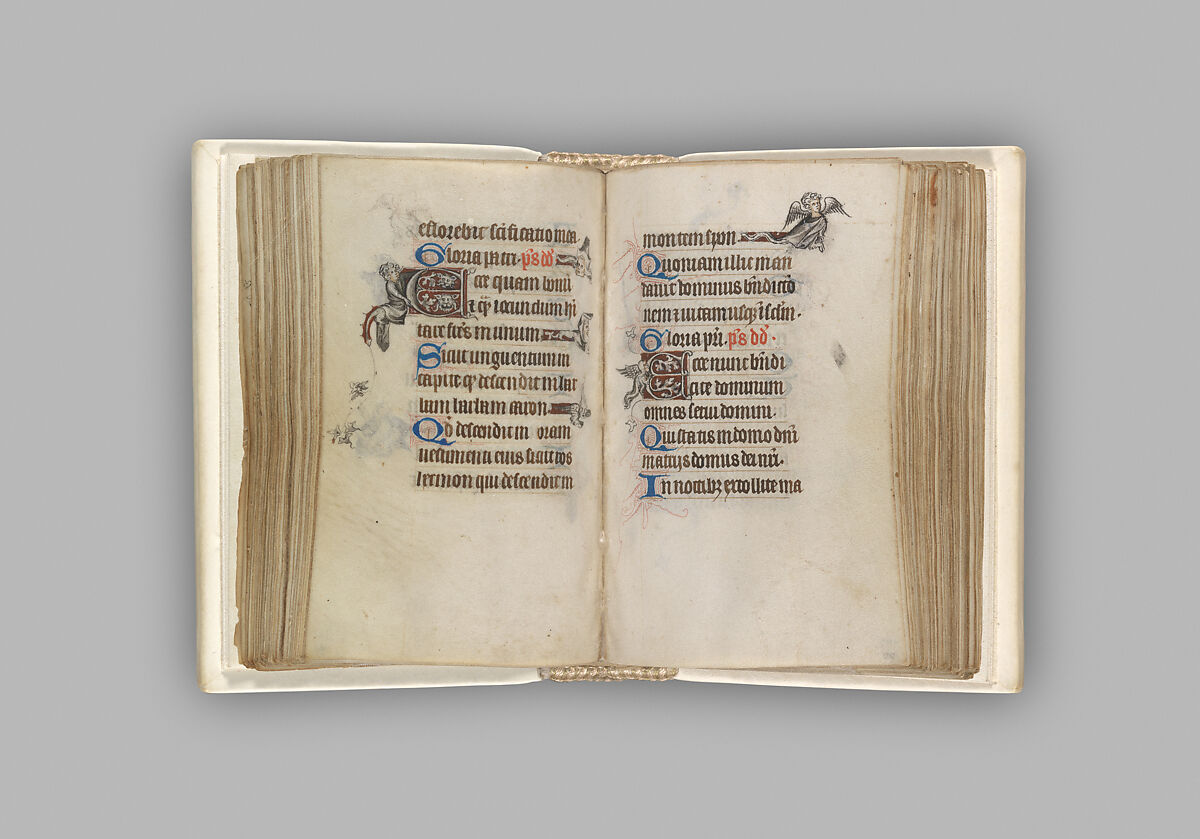 eflorebit scificatio mea
Gloria patri. ps dd
Ecce quam bonu
et qz iocundum hi
tare fres in unum
Sicut unguentum in
capite qd descendit in bar
bam barbam aaron
Qd descendit in oram
vestimenti eius sicut ros
hermon qui descendit in
montem syon
Quoniam illic man
davit dominus bndictio
nem et vitam usqz in sclm.
Gloria pri. ps dd.
Ecce nunc bndi
cite dominum
omnes servi domini.
Qui statis in domo dni
in atriis domus dei nri.
In noctibz extollite ma